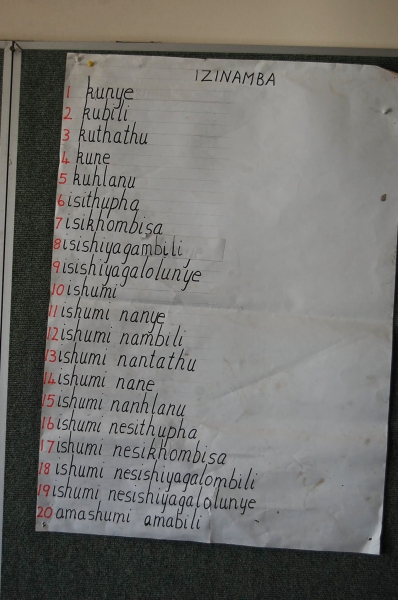 IZINAMBA
1 kunye
2 kubili
3 kuthathu
4 kune
5 kuhlanu
6 isithupha
7 isikhombisa
8 isishiyagambili
9 isishiyagalolunye
10 ishumi
11 ishumi nanye
12 ishumi nambili
13 ishumi nantathu
14 ishumi nane
15 ishumi nanhlanu
16 ishumi nesithupha
17 ishumi nesikhombisa
18 ishumi nesishiyagalombili
19 ishumi nesishiyagalolunye
20 amashumi amabili